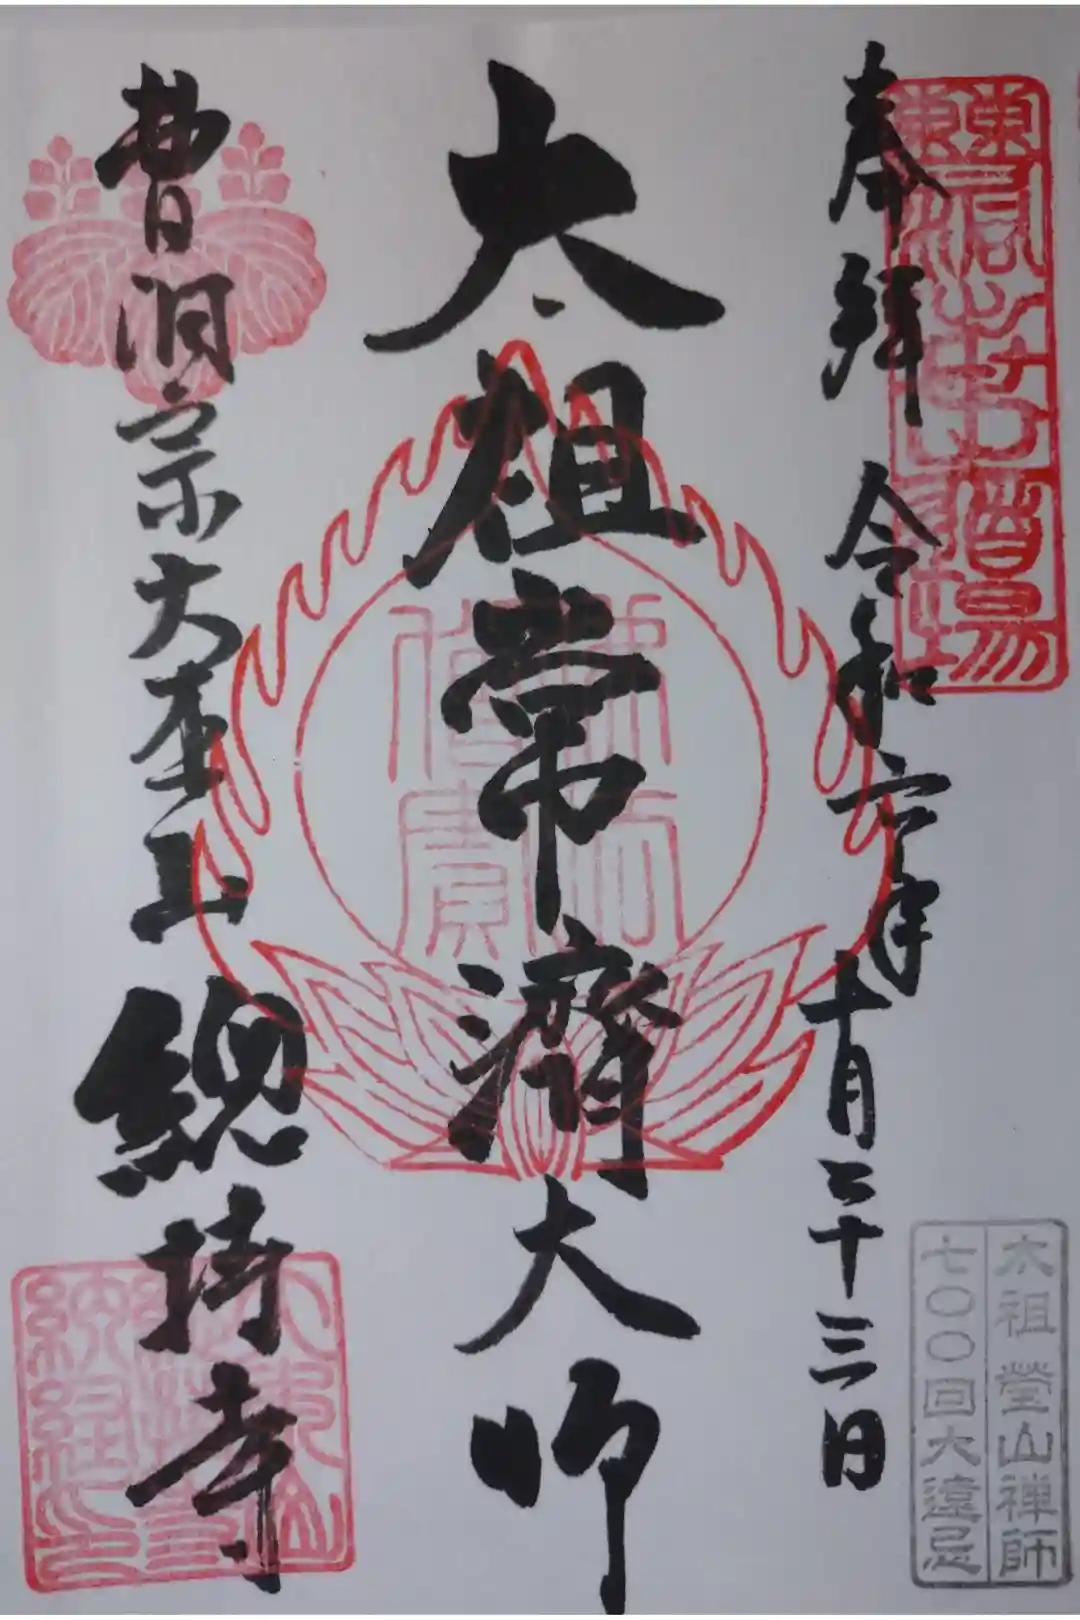 奉拝 令和六年十月二十三日
太祖常濟大师
曹洞宗大本山 總持寺
太祖瑩山禅師
七〇〇回大遠忌